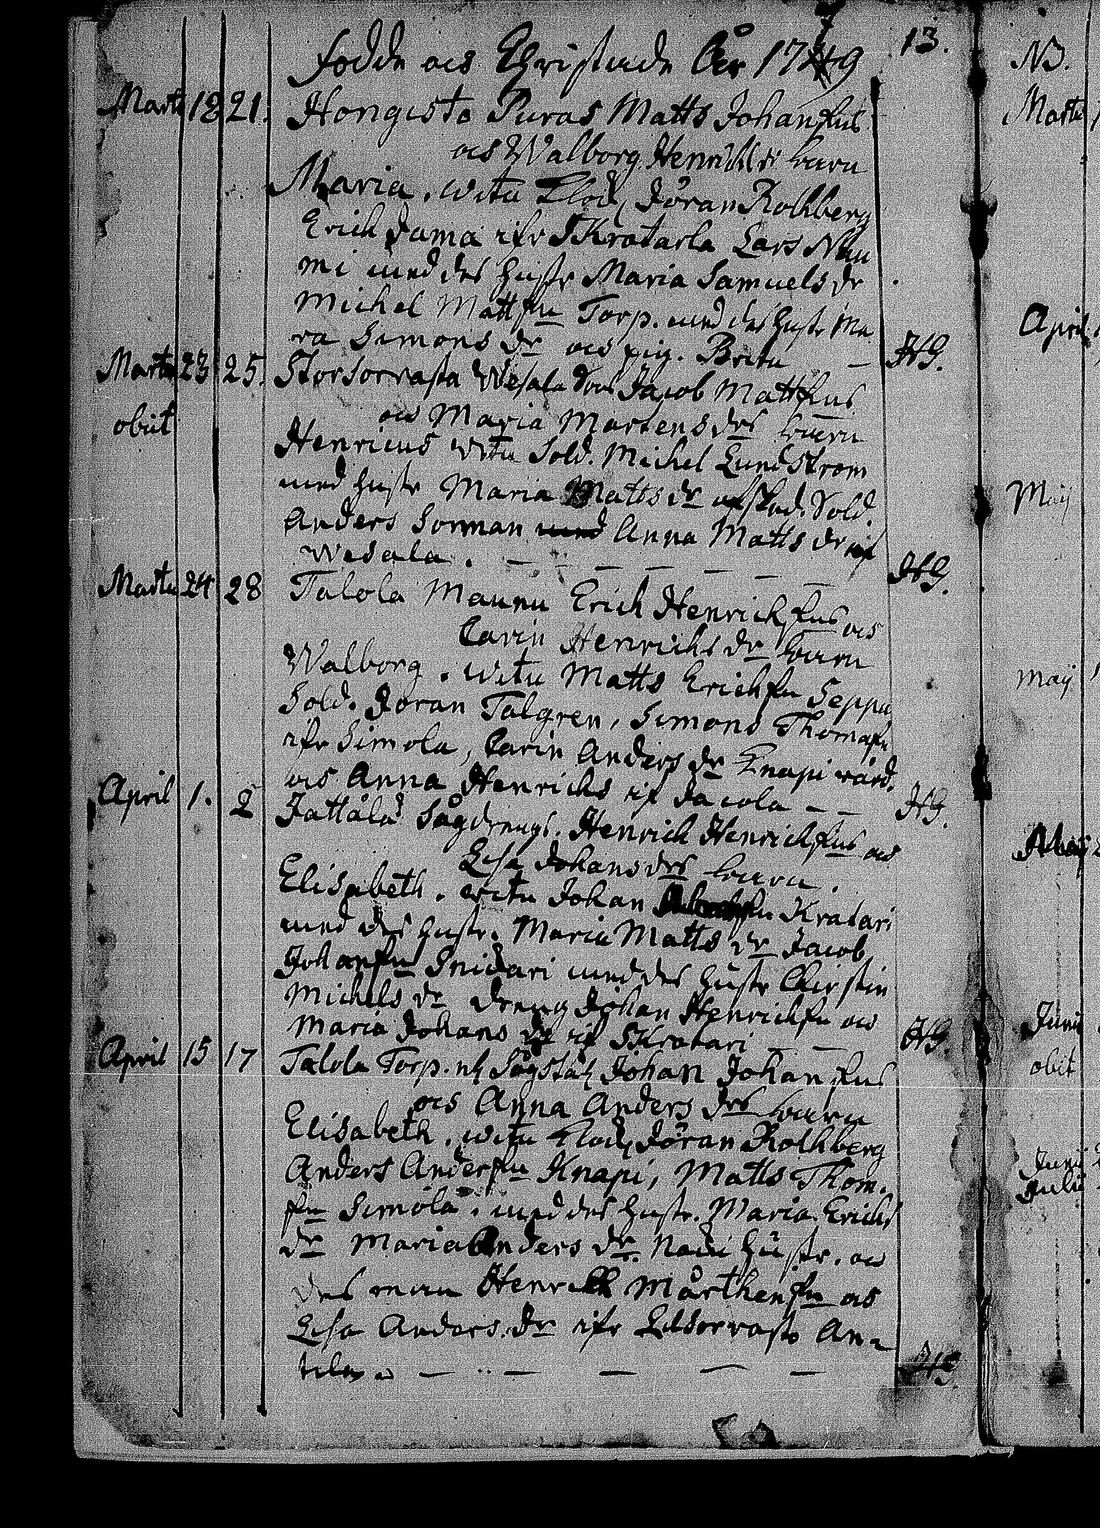 födde och Christnade År 1749 13.
Martii 18 21. Hongisto Puras Matts Johansons
och Walborg Henrichs dr barn
Maria. witn Klock. Jöran Rothberg
Erich Jama ifr Skratarla Lars Nau
mi med des hustr Maria Samuels dr
Michel Mattsn Torp. med des hustr Ma
ria Simons dr och pig. Brita — HG.
Martii 23 25. Storsorvasta Wesala Jacob Mattsons
obiit och Maria Mårtens drs barn
Henricus witn Sold. Michel Lundstrom
med hustr Maria Matts dr afskad. Sold.
Anders Sorman Anna Matts dr if
Wesala. — — — — — HG.
Martii 24 28 Talola Maunu Erich Henrichsons och
Carin Henrichs dr barn
Walborg. witn Matts Erichsn Seppa
Sold. Jöran Talgren, Simons Thomasn
ifr Simola, Carin Anders dr Knapi wärd.
och Anna Henrichs if Jacola — — HG.
April 1. 2 Jattala Sågdrengs. Henrich Henrichsons och
Lisa Johans drs barn.
Elisabeth. witn Johan Kratari
med des hustr. Maria Matts dr Jacob
Johansn Snidari med des hustr Chirstin
Michels dr dreng Johan Henrichsn och
Maria Johans dr if Skratari — — HG.
April 15 17 Talola Torp. Johan Johansons
och Anna Anders drs barn
Elisabeth. witn Klock. Jöran Rothberg
Anders Andersn Knapi, Matts Thom.
sn Simola. med des hustr. Maria Erichs
dr Maria Anders dr. hustr. och
des man Henrich Mårthensn och
Lisa Anders dr ifr An=
tila. — — — — — HG.
NB.
Martii
April
Maij
Maij
Maij
Junii
obiit
Junii
Julii